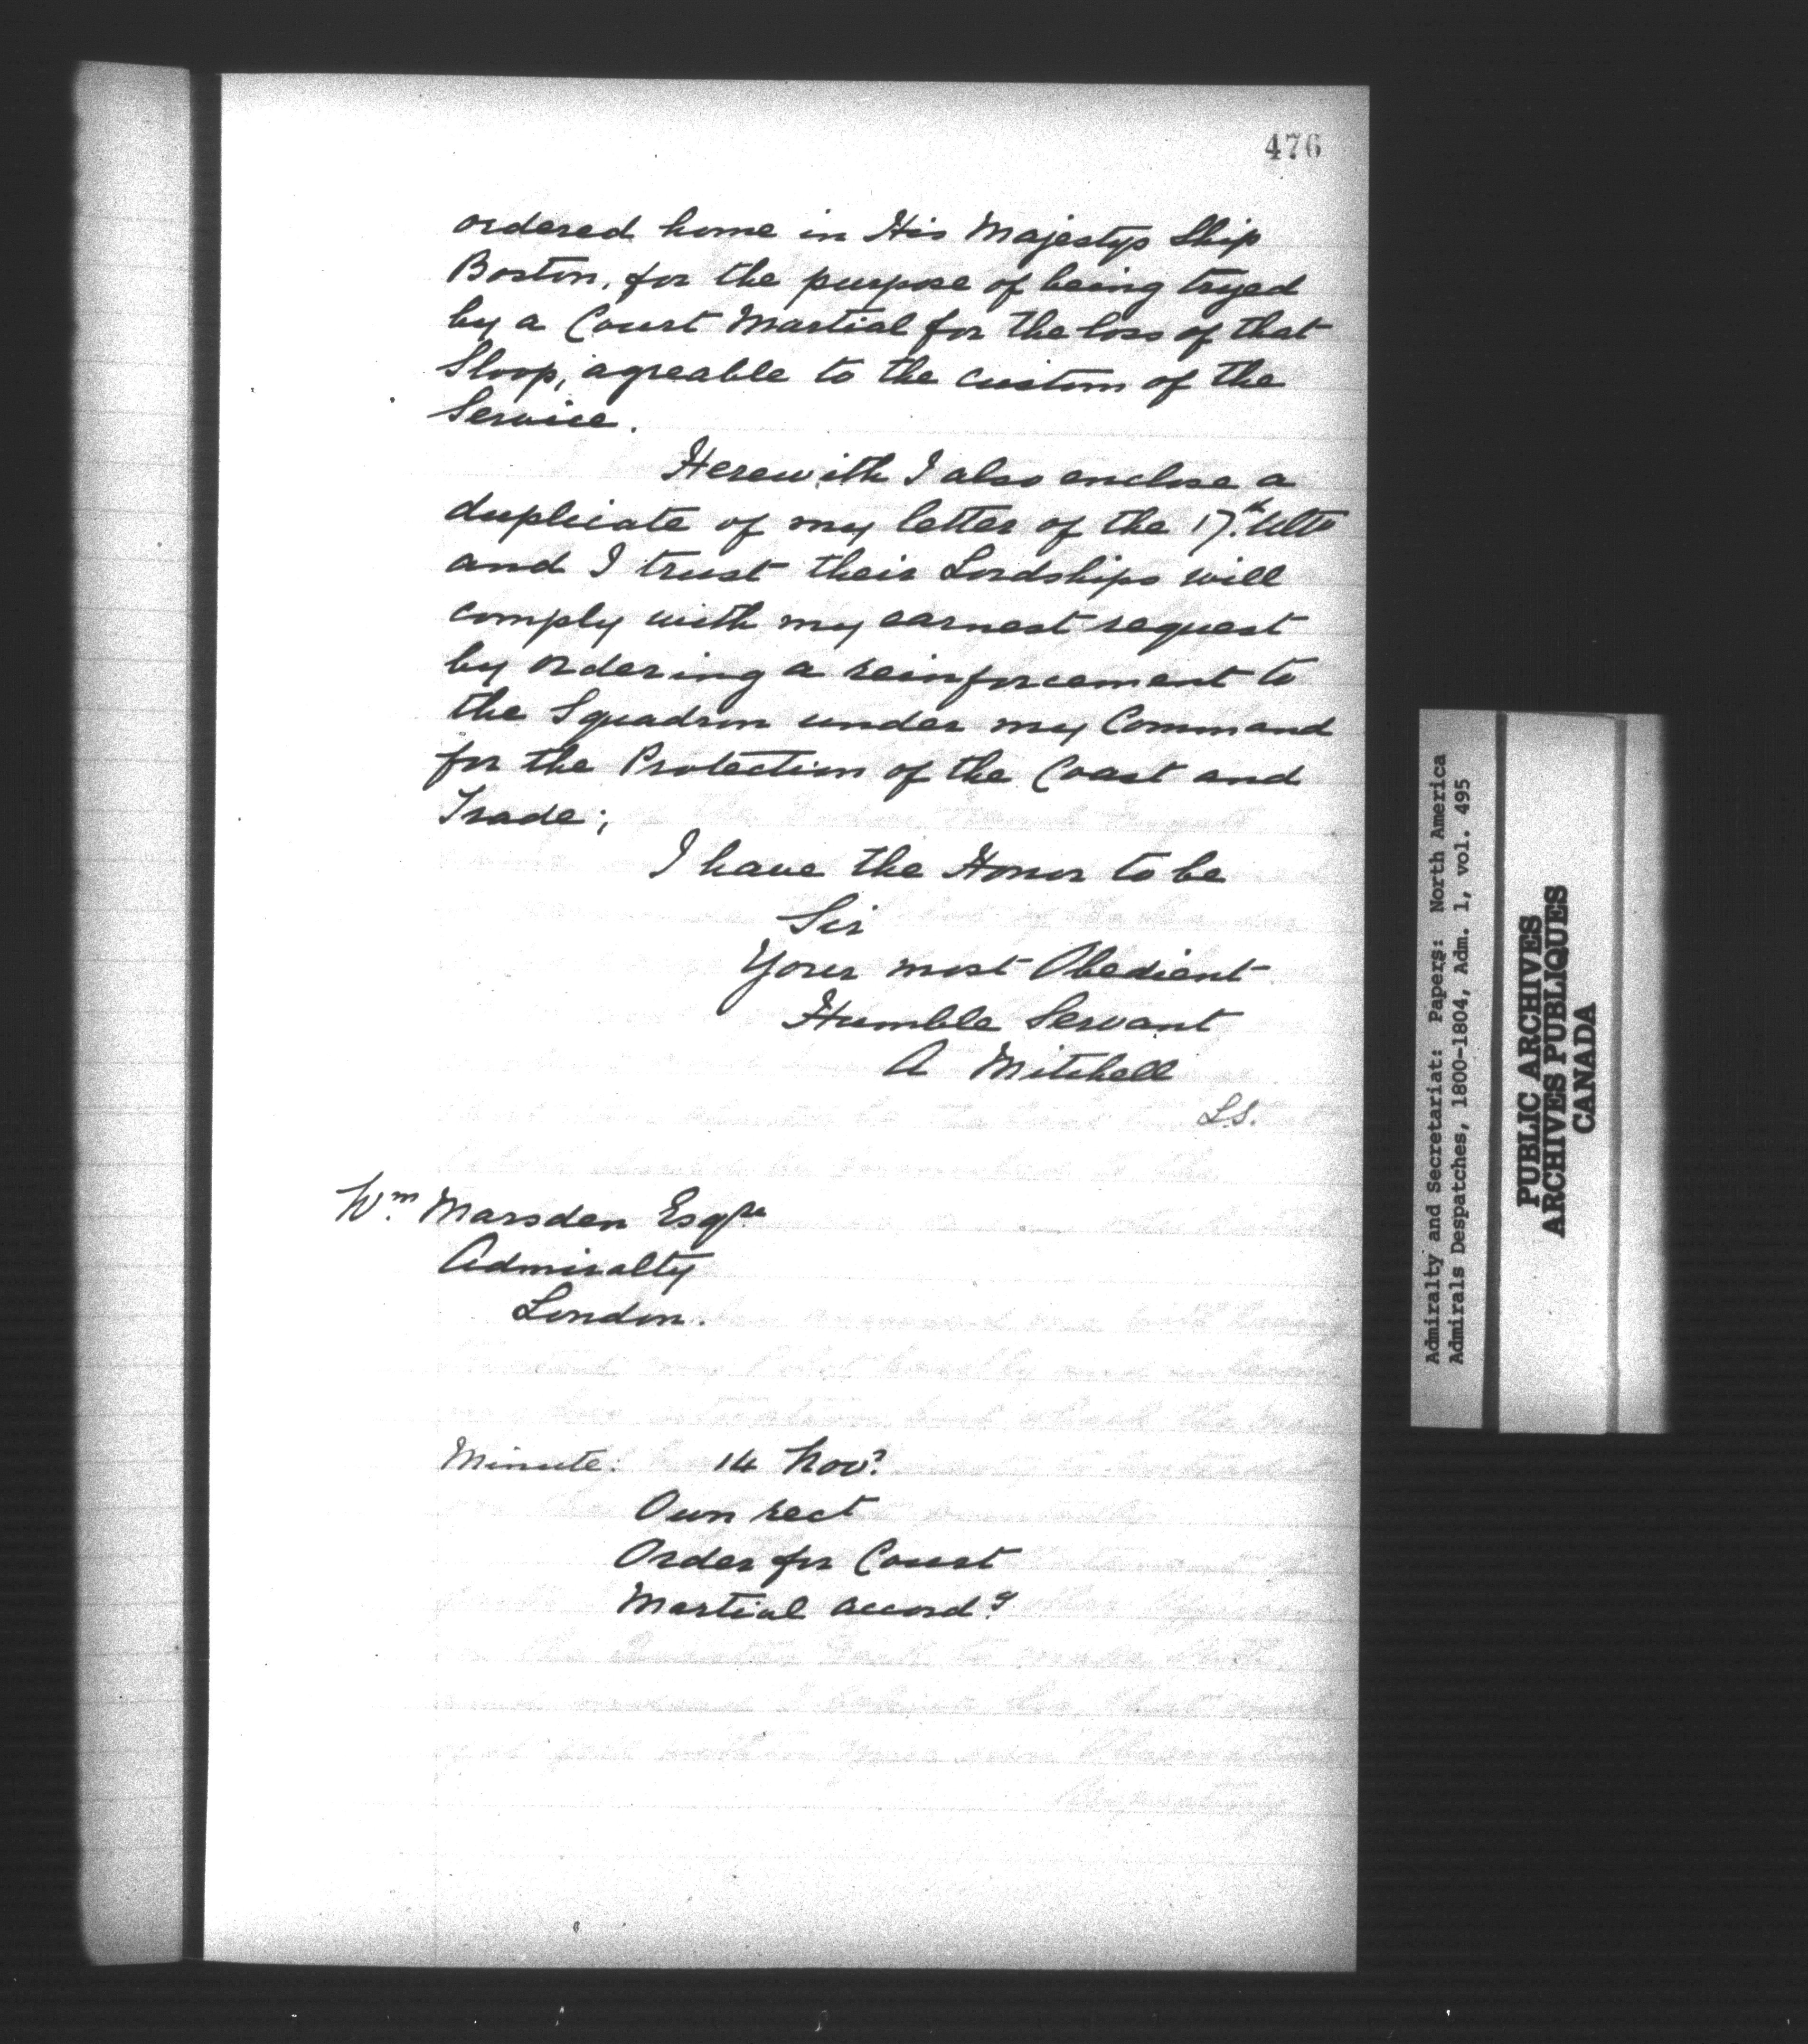 476
ordered home in His Majestys Ship
Boston, for the purpose of being tryed
by a Court Martial for the loss of that
Sloop, agreable to the custom of the
Service.
Herewith I also enclose a
duplicate of my letter of the 17.th Ulto
and I trust their Lordships will
comply with my earnest request
by ordering a reinforcement to
the Squadron under my Command
for the Protection of the Coast and
Trade;
I have the Honor to be
Sir
Your most Obedient
Humble Servant
A Mitchell
L.S.
Wm. Marsden Esqre
Admiralty
London.
Minute: 14 Novr.
Own rect
Order for Court
Martial accordg.
Admiralty and Secretariat: Papers: North America
Admirals Despatches, 1800-1804, Adm. 1, vol. 495
PUBLIC ARCHIVES
ARCHIVES PUBLIQUES
CANADA